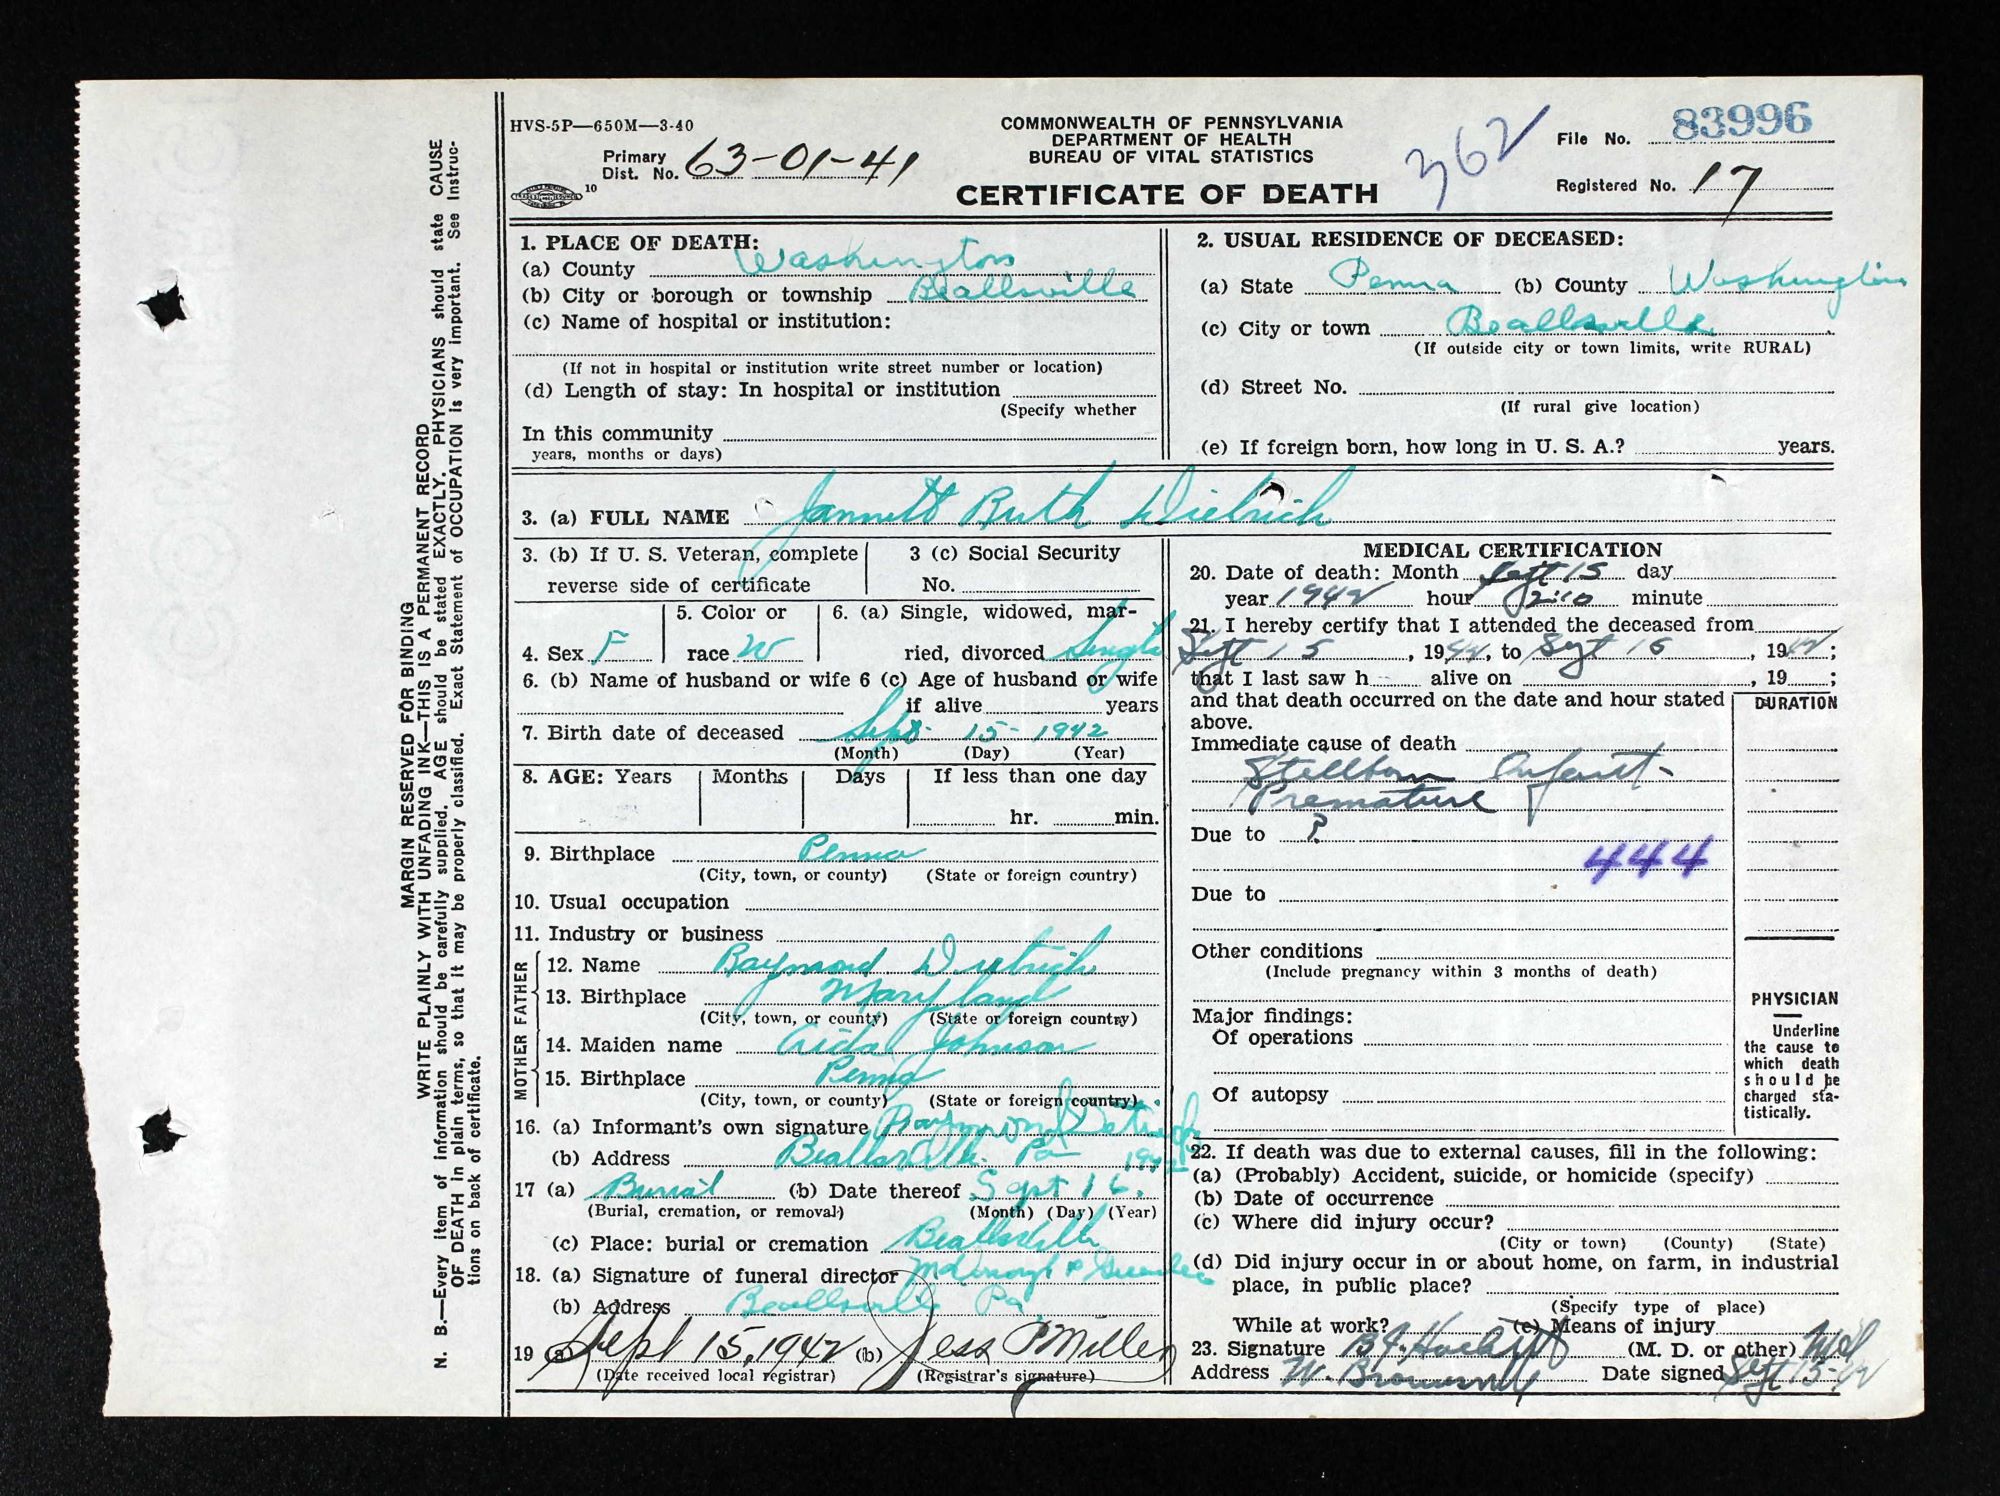 HVS-5P—650M—3-40
Primary Dist. No. 63-01-41
10
COMMONWEALTH OF PENNSYLVANIA
DEPARTMENT OF HEALTH
BUREAU OF VITAL STATISTICS
CERTIFICATE OF DEATH
362
File No. 83996
Registered No. 17
MARGIN RESERVED FOR BINDING
WRITE PLAINLY WITH UNFADING INK—THIS IS A PERMANENT RECORD
N. B.—Every item of information should be carefully supplied. AGE should be stated EXACTLY. PHYSICIANS should state CAUSE
OF DEATH in plain terms, so that it may be properly classified. Exact Statement of OCCUPATION is very important. See Instruc-
tions on back of certificate.
1. PLACE OF DEATH:
(a) County Washington
(b) City or borough or township Beallsville
(c) Name of hospital or institution:
(If not in hospital or institution write street number or location)
(d) Length of stay: In hospital or institution
(Specify whether
In this community
years, months or days)
2. USUAL RESIDENCE OF DECEASED:
(a) State Penna (b) County Washington
(c) City or town Beallsville
(If outside city or town limits, write RURAL)
(d) Street No.
(If rural give location)
(e) If foreign born, how long in U. S. A.? years.
3. (a) FULL NAME Jannett Ruth Dietrich
3. (b) If U. S. Veteran, complete
reverse side of certificate
3 (c) Social Security
No.
4. Sex F
5. Color or
race W
6. (a) Single, widowed, mar-
ried, divorced Single
6. (b) Name of husband or wife 6 (c) Age of husband or wife
if alive years
7. Birth date of deceased Sept. 15 - 1942
(Month) (Day) (Year)
8. AGE: Years Months Days If less than one day
hr. min.
9. Birthplace Penna
(City, town, or county) (State or foreign country)
10. Usual occupation
11. Industry or business
FATHER
12. Name Raymond Dietrich
13. Birthplace Maryland
(City, town, or county) (State or foreign country)
MOTHER
14. Maiden name Aida Johnson
15. Birthplace Penna
(City, town, or county) (State or foreign country)
16. (a) Informant's own signature Raymond Detrich
(b) Address Beallsville. Pa
17 (a) Burial (b) Date thereof Sept 16. 1942
(Burial, cremation, or removal) (Month) (Day) (Year)
(c) Place: burial or cremation Beallsville
18. (a) Signature of funeral director
(b) Address Beallsville Pa
19 (a) Sept 15, 1942 (b) Jess P Miller
(Date received local registrar) (Registrar's signature)
MEDICAL CERTIFICATION
20. Date of death: Month Sept 15 day
year 1942 hour 2:10 minute
21. I hereby certify that I attended the deceased from
Sept 15, 1942, to Sept 15, 1942;
that I last saw h alive on , 19 ;
and that death occurred on the date and hour stated
above.
DURATION
Immediate cause of death
Stillborn Infant-
Premature
Due to ?
444
Due to
Other conditions
(Include pregnancy within 3 months of death)
Major findings:
Of operations
Of autopsy
PHYSICIAN
Underline
the cause to
which death
should be
charged sta-
tistically.
22. If death was due to external causes, fill in the following:
(a) (Probably) Accident, suicide, or homicide (specify)
(b) Date of occurrence
(c) Where did injury occur?
(City or town) (County) (State)
(d) Did injury occur in or about home, on farm, in industrial
place, in public place?
(Specify type of place)
While at work? (e) Means of injury
23. Signature (M. D. or other) MD
Address W. Brownsville Date signed Sept 15-42